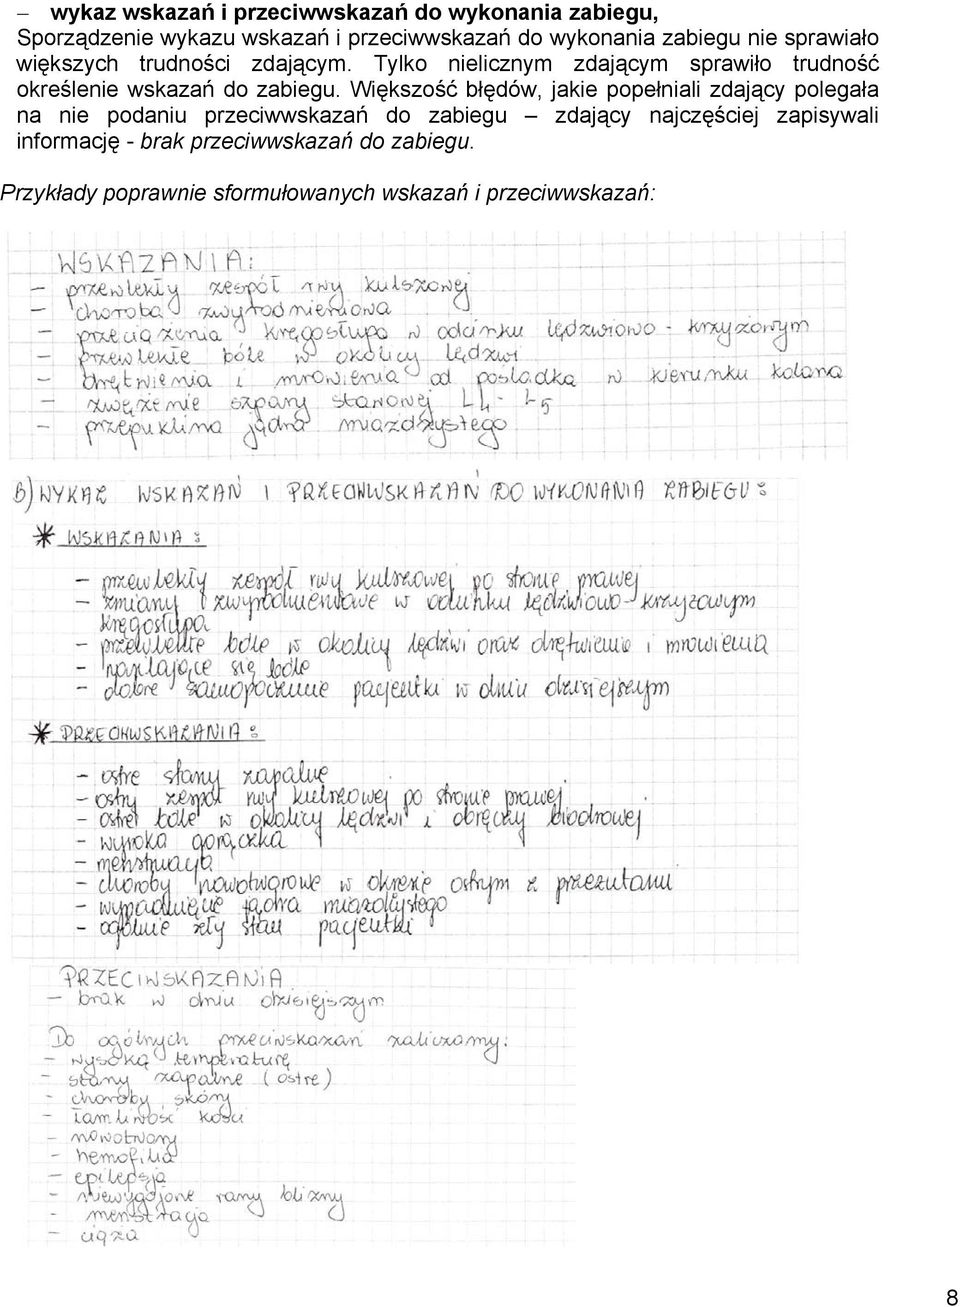 – wykaz wskazań i przeciwwskazań do wykonania zabiegu,
Sporządzenie wykazu wskazań i przeciwwskazań do wykonania zabiegu nie sprawiało
większych trudności zdającym. Tylko nielicznym zdającym sprawiło trudność
określenie wskazań do zabiegu. Większość błędów, jakie popełniali zdający polegała
na nie podaniu przeciwwskazań do zabiegu – zdający najczęściej zapisywali
informację - brak przeciwwskazań do zabiegu.
Przykłady poprawnie sformułowanych wskazań i przeciwwskazań:
WSKAZANIA:
- przewlekły zespół rwy kulszowej
- choroba zwyrodnieniowa
- przeciążenia kręgosłupa w odcinku lędźwiowo - krzyżowym
- przewlekłe bóle w okolicy lędźwi
- drętwienia i mrowienia od pośladka w kierunku kolana
- zwężenie szpary stawowej L4 - L5
- przepuklina jądra miażdżystego
b) WYKAZ WSKAZAŃ I PRZECIWWSKAZAŃ DO WYKONANIA ZABIEGU:
* WSKAZANIA:
- przewlekły zespół rwy kulszowej po stronie prawej
- zmiany zwyrodnieniowe w odcinku lędźwiowo-krzyżowym
kręgosłupa
- przewlekłe bóle w okolicy lędźwi oraz drętwienie i mrowienia
- nasilające się bóle
- dobre samopoczucie pacjentki w dniu dzisiejszym
* PRZECIWSKAZANIA:
- ostre stany zapalne
- ostry zespół rwy kulszowej po stronie prawej
- ostre bóle w okolicy lędźwi i obręczy biodrowej
- wysoka gorączka
- menstruacja
- choroby nowotworowe w okresie ostrym z przerzutami
- wypadnięcie jądra miażdżystego
- ogólnie zły stan pacjentki
PRZECIWSKAZANIA
- brak w dniu dzisiejszym
Do ogólnych przeciwskazań zaliczamy:
- wysoką temperaturę
- stany zapalne (ostre)
- choroby skóry
- łamliwość kości
- nowotwory
- hemofilia
- epilepsja
- niewygojone rany blizny
- menstracja
- ciąża
8